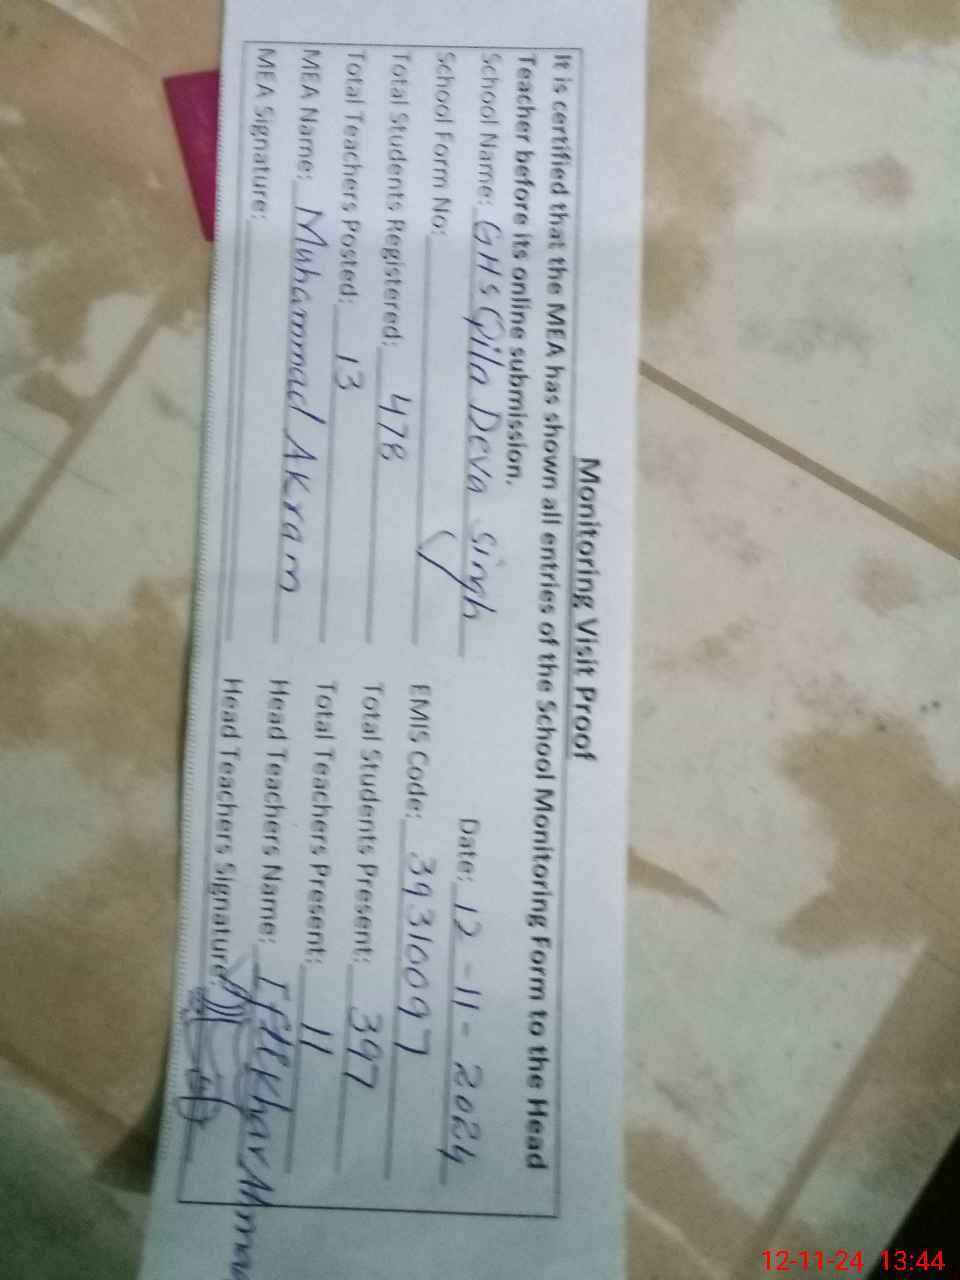 Monitoring Visit Proof
It is certified that the MEA has shown all entries of the School Monitoring Form to the Head
Teacher before its online submission.
Date: 12-11-2024
School Name: GHS Qila Deva Singh
School Form No: EMIS Code: 39310097
Total Students Registered: 478 Total Students Present: 397
Total Teachers Posted: 13 Total Teachers Present: 11
MEA Name: Muhammad Akram Head Teachers Name: Iftikhar Ahmad
MEA Signature: Head Teachers Signature:
12-11-24 13:44